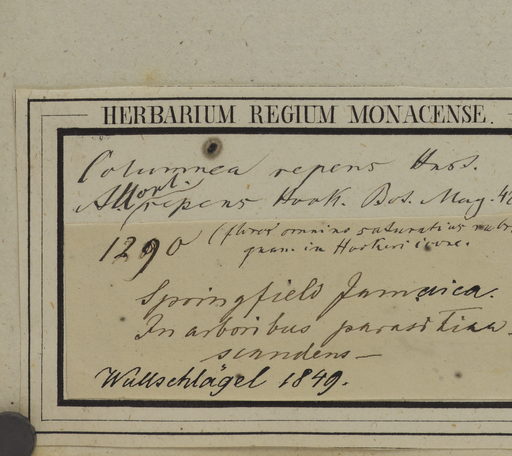 HERBARIUM REGIUM MONACENSE.
Columnea repens Hnst.
Allopl. repens Hook. Bot. Mag. 42
1290 (flores omnino saturatius rubr
quam in Hookeri icone.
Springfield Jamaica.
In arboribus parasitica
scandens —
Wullschlägel 1849.